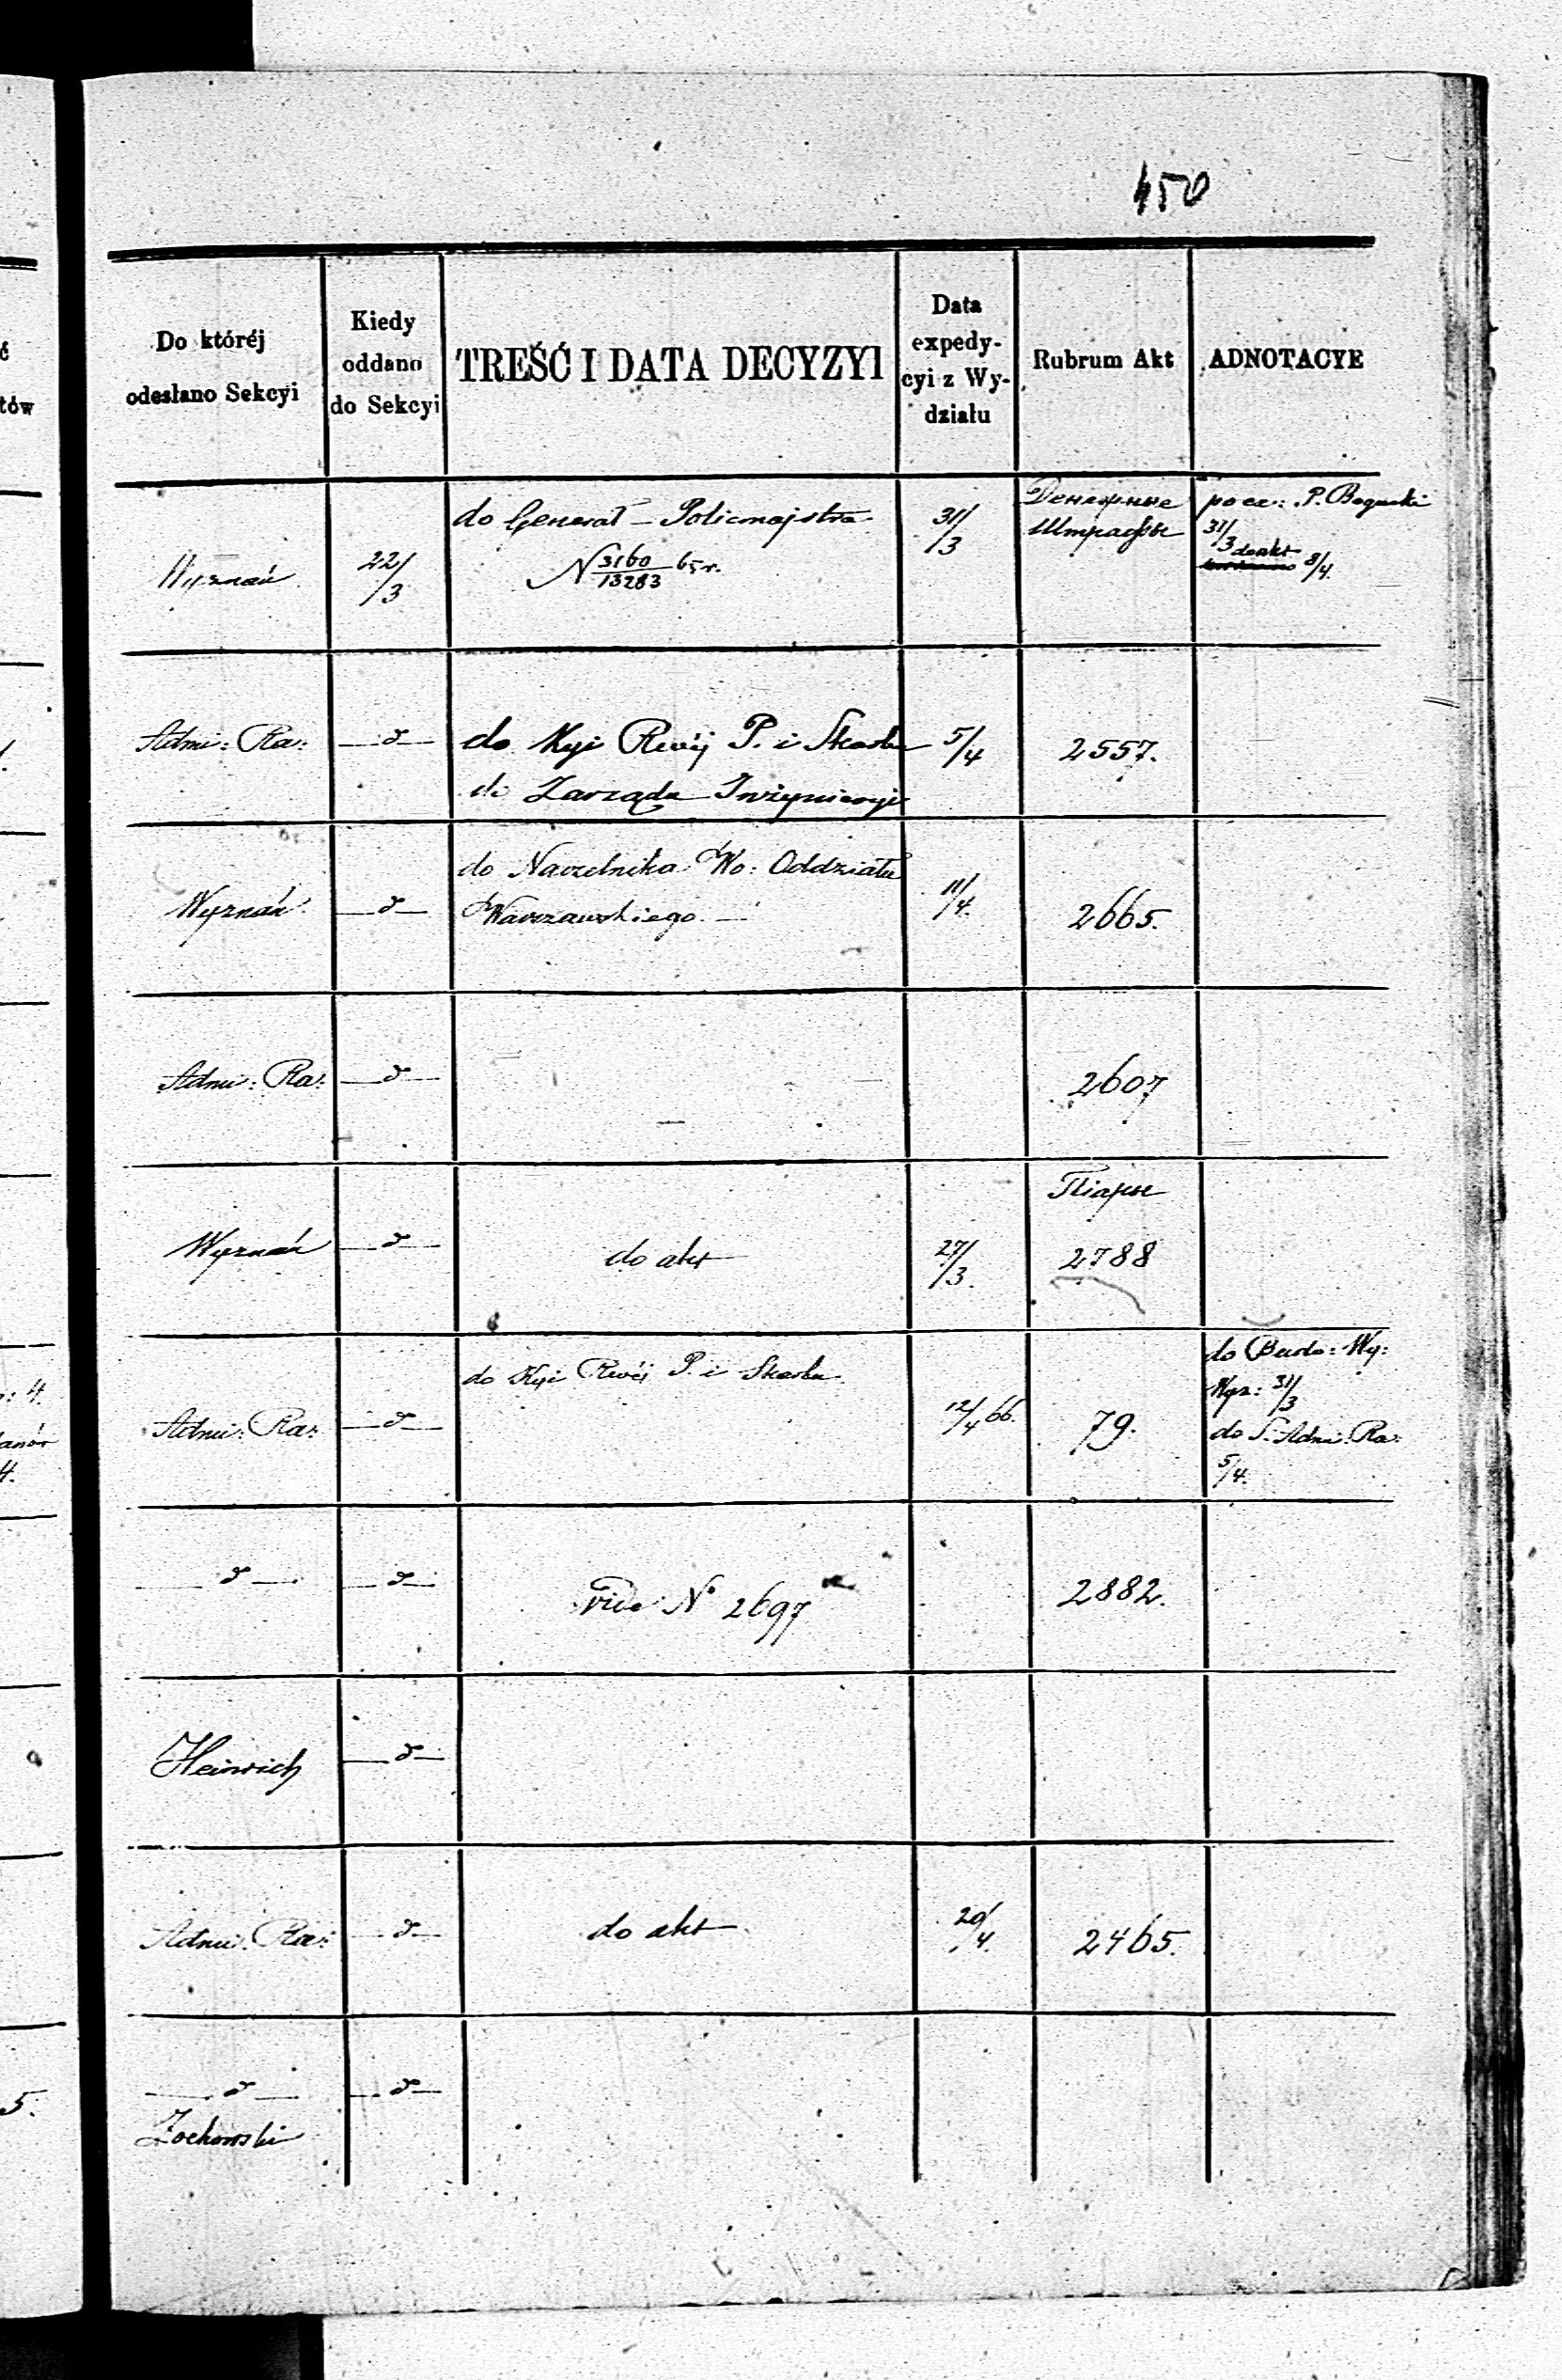 450
Do któréj
odesłano Sekcyi
Kiedy
oddano
do Sekcyi
TREŚĆ I DATA DECYZYI
Data
expedy-
cyi z Wy-
działu
Rubrum Akt
ADNOTACYE
Wyznań
22/3
do Generał-Policmajstra
N 3160/13283 65 r.
31/3
Денежные
Штрафы
po ex: P. Bogucki
31/3 do akt
8/4.
Admi: Ra:
— d —
do Kyi Rwéj P. i Skarbu
do Zarządu Inżynieryi
5/4
2557.
Wyznań
— d —
do Naczelnika Wo: Oddziału
Warszawskiego. —
11/4.
2665.
Admi: Ra:
— d —
2607
Wyznań
— d —
do akt
27/3.
Піары
2788
Admi: Ra:
— d —
do Kyi Rwéj P. i Skarbu
12/4 66.
79.
do Budo: Wy:
Wyz: 31/3
do S. Admi: Ra:
5/4.
— d —
— d —
Vide N° 2697
2882.
Heinrich
— d —
Admi: Ra:
— d —
do akt
20/4.
2465.
— d —
Żochowski
— d —
ć
tów
4.
4.
5.